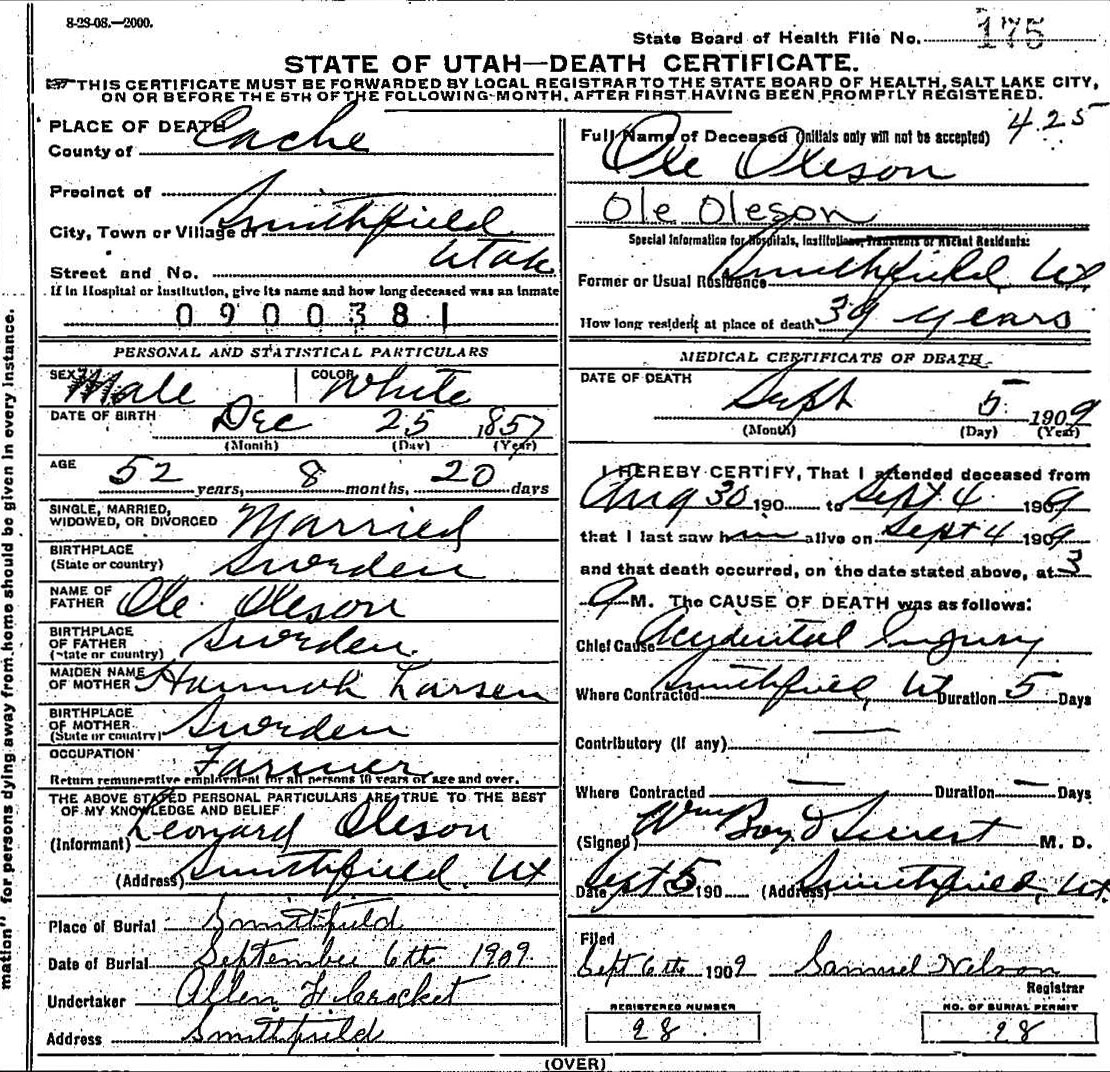 8-28-08.—2000.
State Board of Health File No. 175
STATE OF UTAH—DEATH CERTIFICATE.
THIS CERTIFICATE MUST BE FORWARDED BY LOCAL REGISTRAR TO THE STATE BOARD OF HEALTH, SALT LAKE CITY,
ON OR BEFORE THE 5TH OF THE FOLLOWING MONTH, AFTER FIRST HAVING BEEN PROMPTLY REGISTERED.
PLACE OF DEATH
County of Cache
Precinct of
City, Town or Village of Smithfield
Utah
Street and No.
If in Hospital or Institution, give its name and how long deceased was an inmate
0900381
PERSONAL AND STATISTICAL PARTICULARS
SEX Male COLOR White
DATE OF BIRTH Dec 25 1857
(Month) (Day) (Year)
AGE
52 years, 8 months, 20 days
SINGLE, MARRIED,
WIDOWED, OR DIVORCED Married
BIRTHPLACE
(State or country) Sweden
NAME OF
FATHER Ole Oleson
BIRTHPLACE
OF FATHER
(State or country) Sweden
MAIDEN NAME
OF MOTHER Hannah Larsen
BIRTHPLACE
OF MOTHER
(State or country) Sweden
OCCUPATION Farmer
Return remunerative employment for all persons 10 years of age and over.
THE ABOVE STATED PERSONAL PARTICULARS ARE TRUE TO THE BEST
OF MY KNOWLEDGE AND BELIEF
(Informant) Leonard Oleson
(Address) Smithfield. Ut
Place of Burial Smithfield
Date of Burial September 6th 1909.
Undertaker Allen H Crocket
Address Smithfield
Full Name of Deceased (Initials only will not be accepted) 425
Ole Oleson
Ole Oleson
Special Information for Hospitals, Institutions, Transients or Recent Residents:
Former or Usual Residence Smithfield Ut.
How long resident at place of death 39 years
MEDICAL CERTIFICATE OF DEATH
DATE OF DEATH
Sept 5 1909
(Month) (Day) (Year)
I HEREBY CERTIFY, That I attended deceased from
Aug 30 190 to Sept 4 1909
that I last saw him alive on Sept 4 1909
and that death occurred, on the date stated above, at 3
a M. The CAUSE OF DEATH was as follows:
Chief Cause Accidental Injury
Where Contracted Smithfield, Ut Duration 5 Days
Contributory (if any) —
Where Contracted — Duration — Days
(Signed) Wm Boyd M. D.
Date Sept 5 190 (Address) Smithfield, Ut.
Filed
Sept 6th 1909 Samuel Nelson
Registrar
REGISTERED NUMBER
28
NO. OF BURIAL PERMIT
28
(OVER)
mation" for persons dying away from home should be given in every instance.